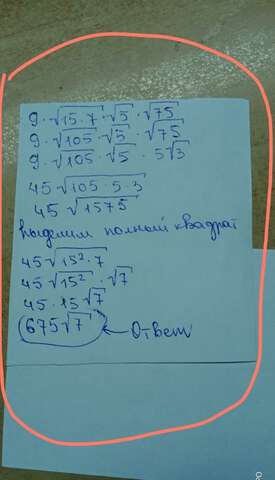 9·√15·7·√5·√75
9·√105·√5·√75
9·√105·√5·5√3
45√105·5·3
45√1575
выделим полный квадрат
45√15²·7
45√15²·√7
45·15√7
675√7 ← Ответ